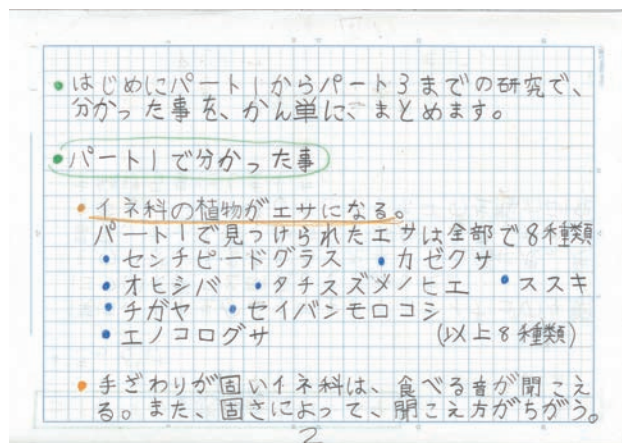 ・はじめにパート1からパート3までの研究で、
分かった事を、かん単に、まとめます。
・パート1で分かった事
・イネ科の植物がエサになる。
パート1で見つけられたエサは全部で8種類
・センチピードグラス ・カゼクサ
・オヒシバ ・タチスズメノヒエ ・ススキ
・チガヤ ・セイバンモロコシ
・エノコログサ (以上8種類)
・手ざわりが固いイネ科は、食べる音が聞こえ
る。また、固さによって、聞こえ方がちがう。
2